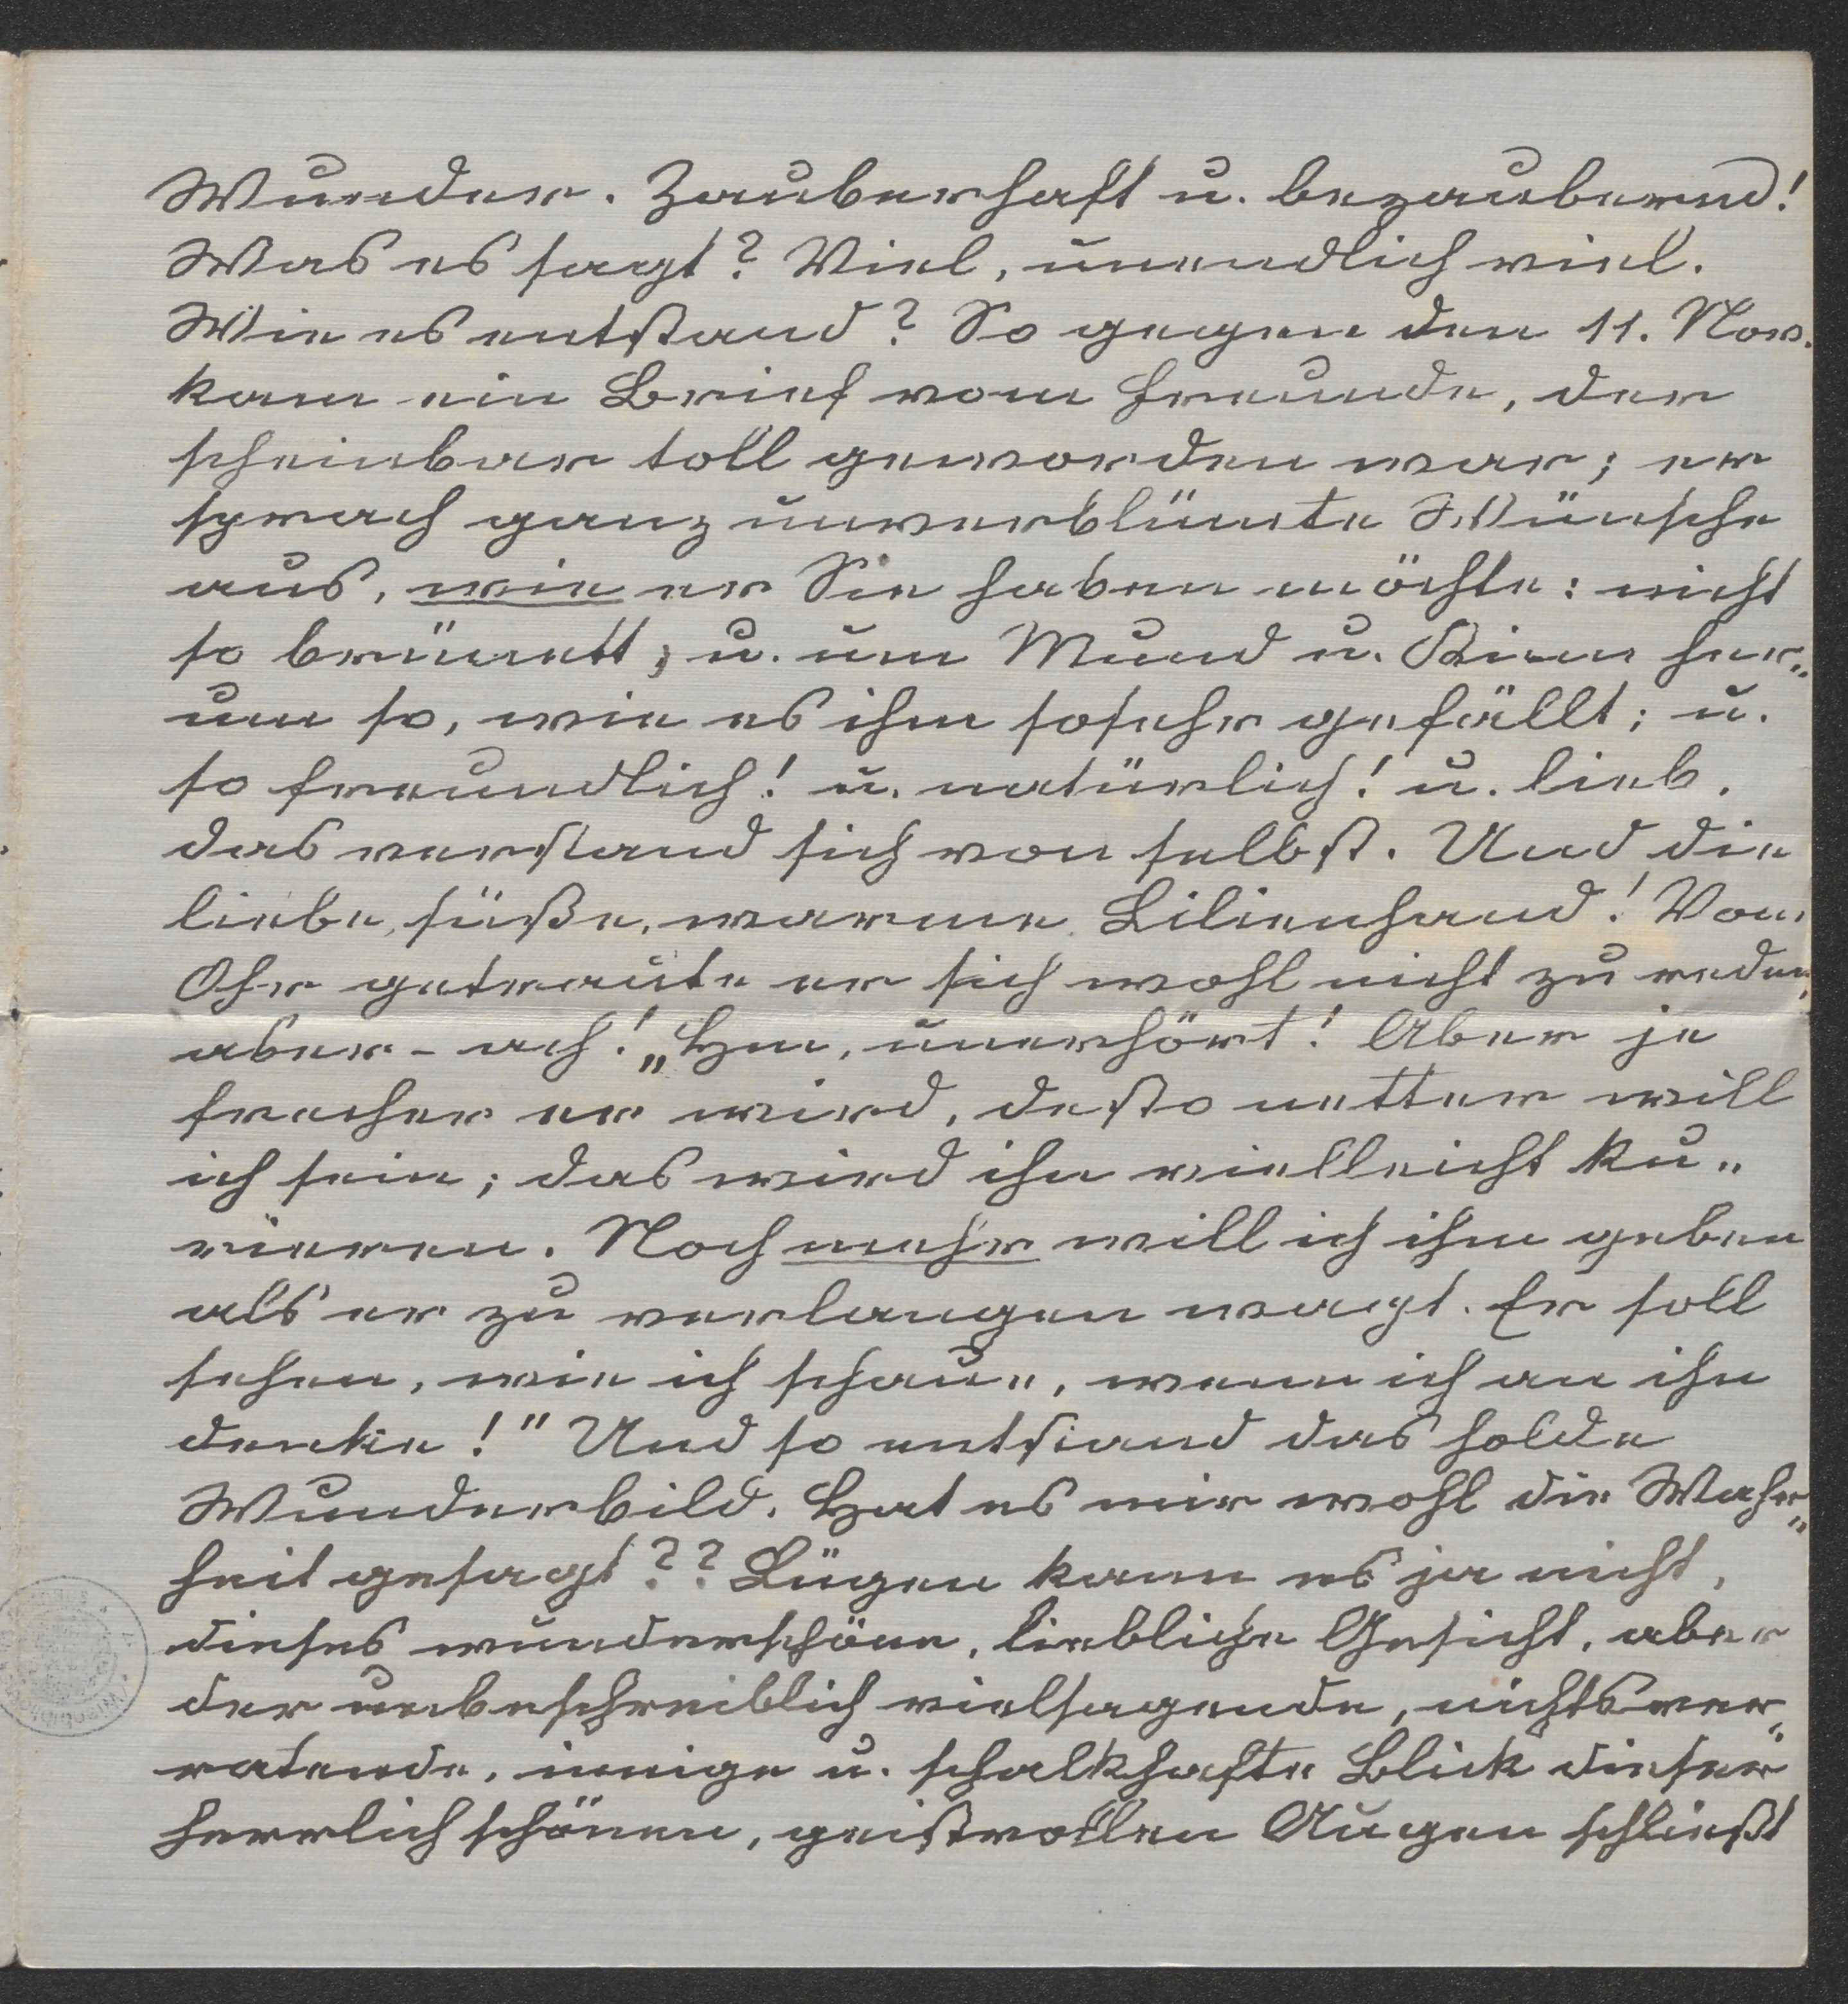 Wunder. Zauberhaft u. bezaubernd!
Was es sagt? Viel, unendlich viel.
Wie es entstand? So gegen den 11. Nov.
kam ein Brief vom Freunde, der
scheinbar toll geworden war; er
sprach ganz unverblümte Wünsche
aus, wie er Sie haben möchte: nicht
so brünett, u. um Mund u. Kinn her„
um so, wie es ihm sosehr gefällt; u.
so freundlich! u. natürlich! u. lieb,
das verstand sich von selbst. Und die
liebe, süße, warme Lilienhand! Vom
Ohr getraute er sich wohl nicht zu reden,
aber - ach! „Hm, unerhört! Aber je
frecher er wird, desto netter will
ich sein; das wird ihn vielleicht ku„
rieren. Noch mehr will ich ihm geben
als er zu verlangen wagt. Er soll
sehen, wie ich schaue, wenn ich an ihn
denke!" Und so entstand das holde
Wunderbild. Hat es mir wohl die Wahr„
heit gesagt?? Lügen kann es ja nicht,
dieses wunderschöne, liebliche Gesicht, aber
der unbeschreiblich vielsagende, nichtsver„
ratende, innige u. schalkhafte Blick dieser
herrlich schönen, geistvollen Augen schließt